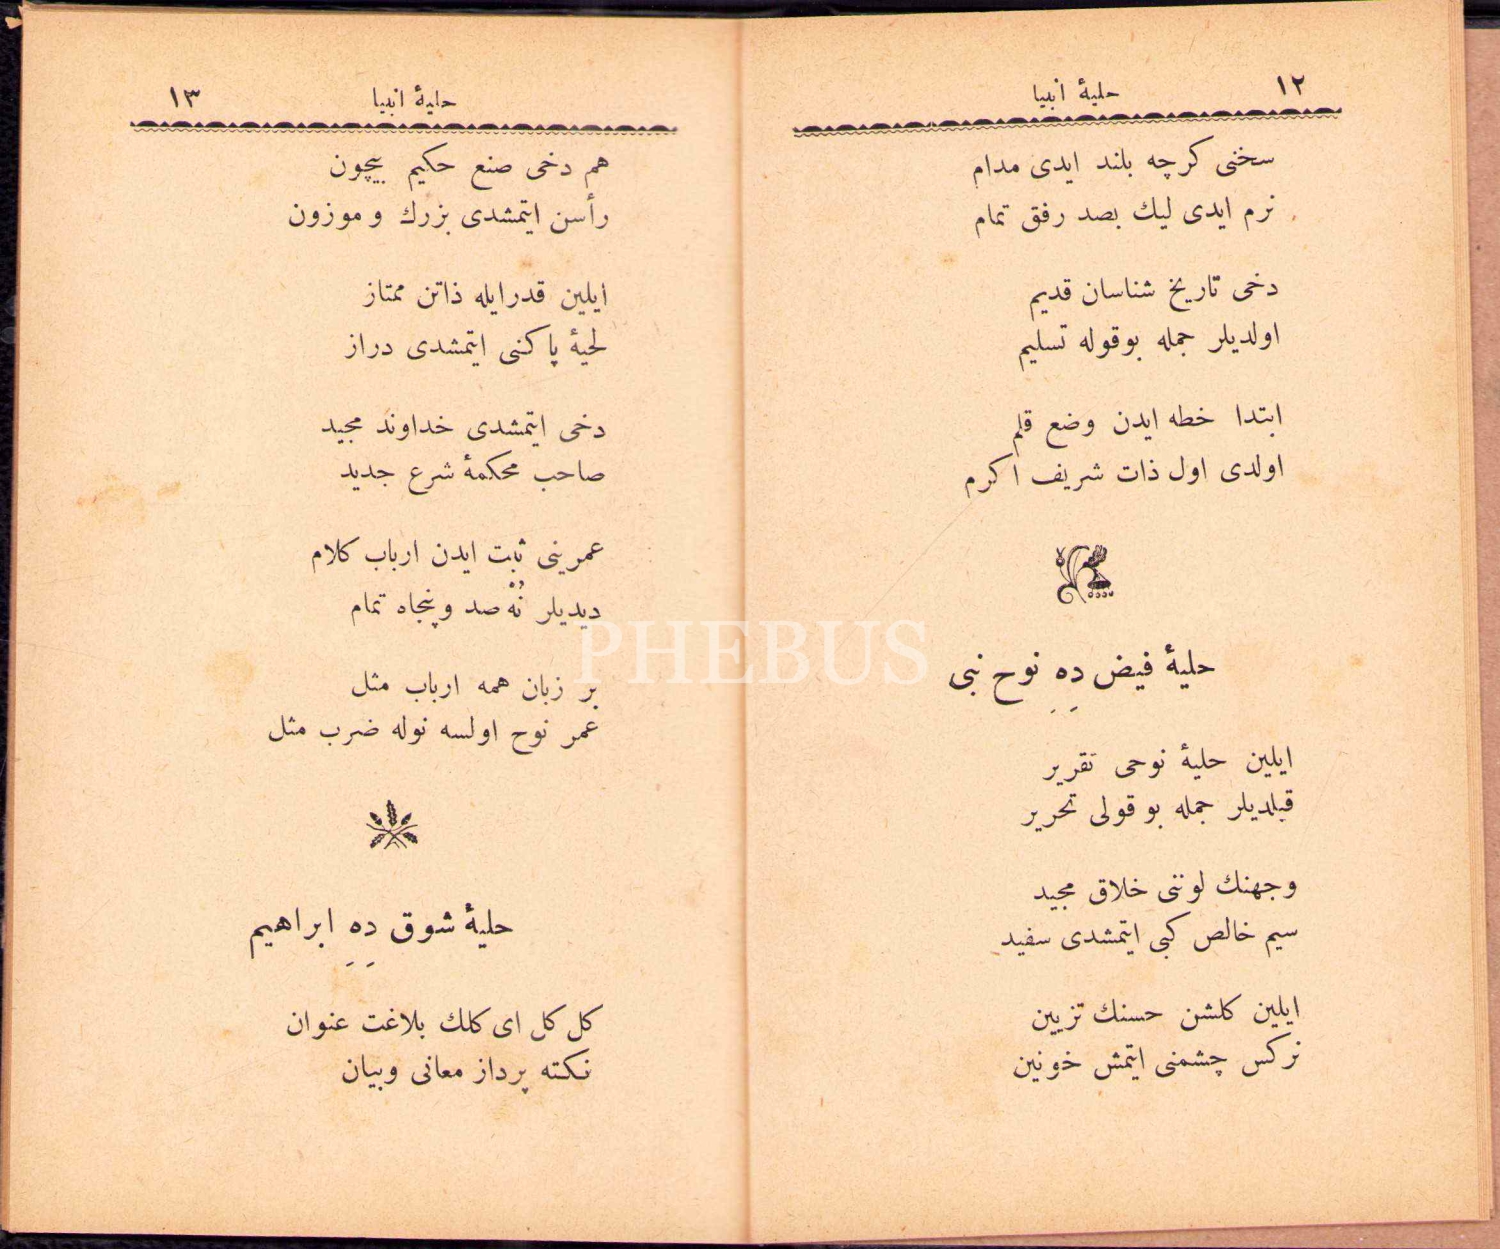 ١٢
حليۀ انبيا
سخنى كرچه بلند ايدى مدام
نرم ايدى ليك بصد رفق تمام
دخى تاريخ شناسان قديم
اولديلر جمله بوقوله تسليم
ابتدا خطه ايدن وضع قلم
اولدى اول ذات شريف اكرم
حليۀ فيض دِهِ نوح نبى
ايلين حليۀ نوحى تقرير
قيلديلر جمله بو قولى تحرير
وجهنك لوننى خلاق مجيد
سيم خالص كبى ايتمشدى سفيد
ايلين كلشن حسنك تزيين
نركس چشمنى ايتمش خونين
١٣
حليۀ انبيا
هم دخى صنع حكيم بيچون
رأسن ايتمشدى بزرك و موزون
ايلين قدرايله ذاتن ممتاز
لحيۀ پاكنى ايتمشدى دراز
دخى ايتمشدى خداوند مجيد
صاحب محكمۀ شرع جديد
عمرينى ثبت ايدن ارباب كلام
ديديلر نُهْ صد وپنجاه تمام
بر زبان همه ارباب مثل
عمر نوح اولسه نوله ضرب مثل
حليۀ شوق دِهِ ابراهيم
كل كل اى كلك بلاغت عنوان
نكته پرداز معانى وبيان
PHEBUS